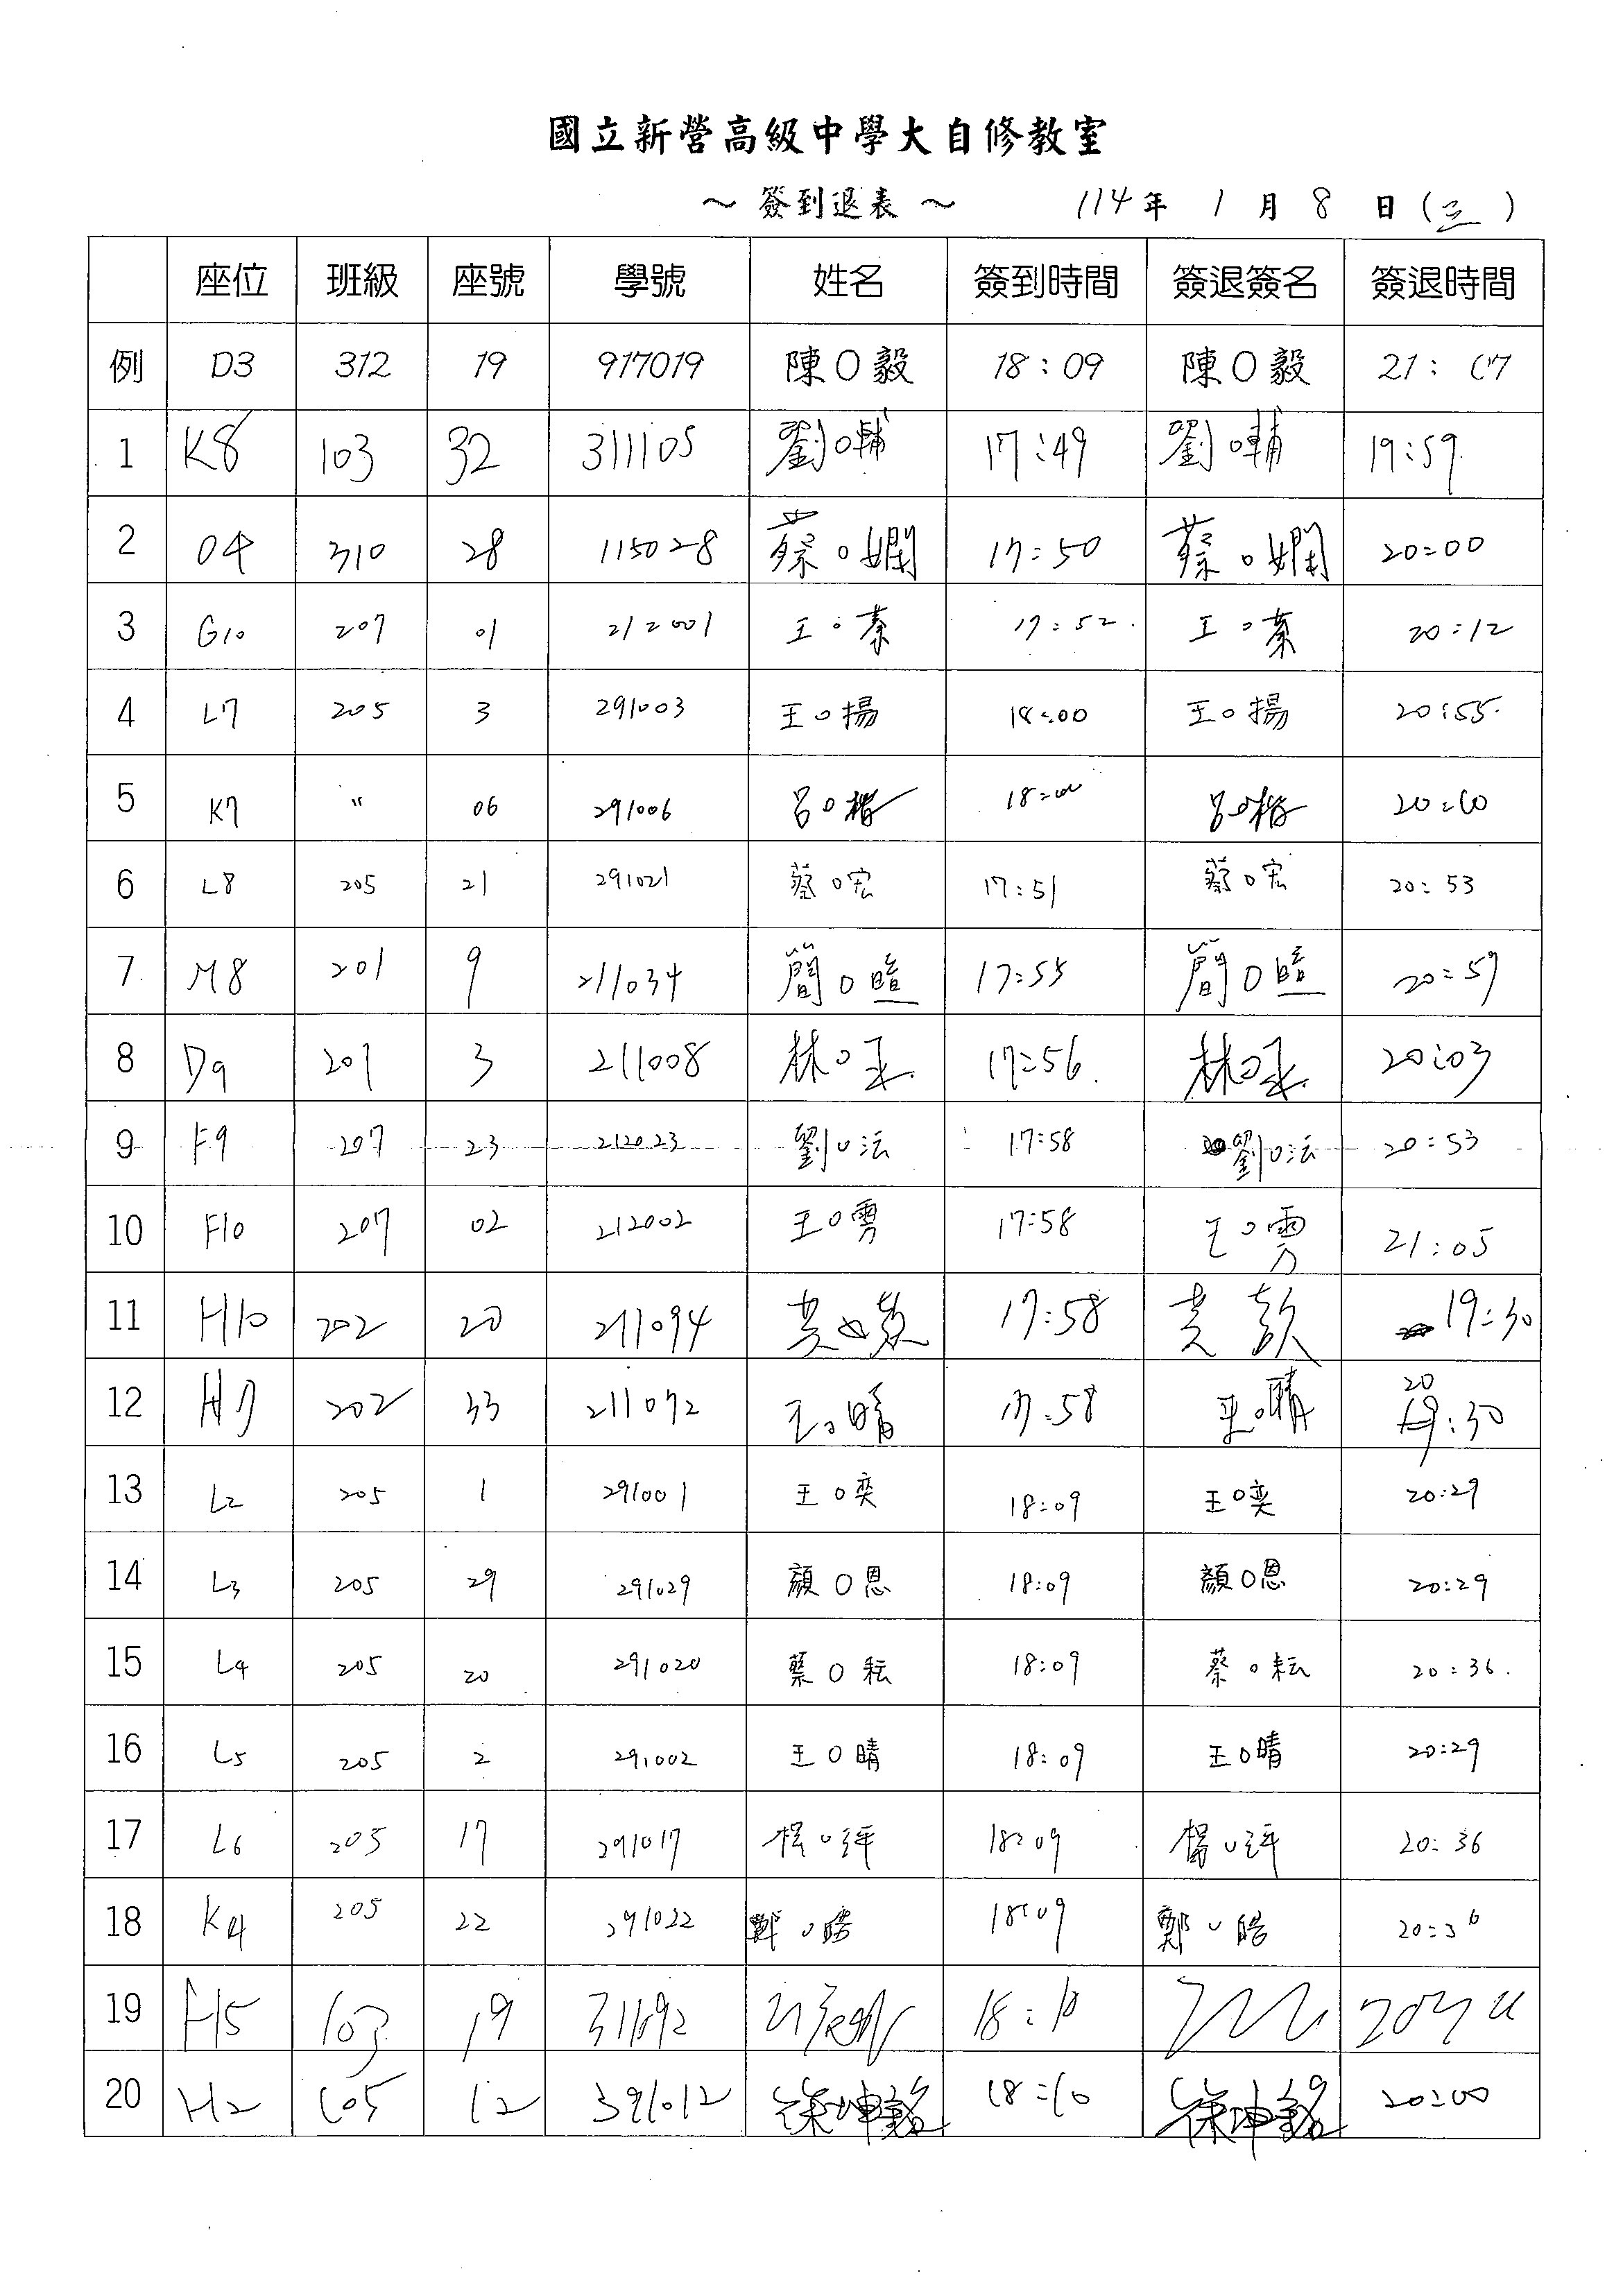 國立新營高級中學大自修教室
～ 簽到退表 ～ 114年 1月 8日(三)
座位 班級 座號 學號 姓名 簽到時間 簽退簽名 簽退時間
例 D3 312 19 917019 陳O毅 18:09 陳O毅 21:07
1 K8 103 32 311105 劉O輔 17:49 劉O輔 19:59
2 O4 310 28 115028 蔡O嫻 17:50 蔡O嫻 20:00
3 G10 207 01 212001 王O蓁 17:52 王O蓁 20:12
4 L7 205 3 291003 王O揚 18:00 王O揚 20:55
5 K7 " 06 291006 呂O楷 18:00 呂O楷 20:00
6 L8 205 21 291021 蔡O宏 17:51 蔡O宏 20:53
7 M8 201 9 211034 簡O暄 17:55 簡O暄 20:59
8 D9 201 3 211008 林O丞 17:56 林O丞 20:03
9 F9 207 23 212023 劉O法 17:58 劉O法 20:53
10 F10 207 02 212002 王O雱 17:58 王O雱 21:05
11 H10 202 20 211094 黃 17:58 黃 19:30
12 H9 202 33 211072 王O晴 17:58 王O晴 20:30
13 L2 205 1 291001 王O奕 18:09 王O奕 20:29
14 L3 205 29 291029 顏O恩 18:09 顏O恩 20:29
15 L4 205 20 291020 蔡O耘 18:09 蔡O耘 20:36
16 L5 205 2 291002 王O晴 18:09 王O晴 20:29
17 L6 205 17 291017 楊O評 18:09 楊O評 20:36
18 K4 205 22 291022 鄭O皓 18:09 鄭O皓 20:36
19 H5 103 19 311092 18:10
20 H2 105 12 391012 徐坤銘 18:10 徐坤銘 20:00